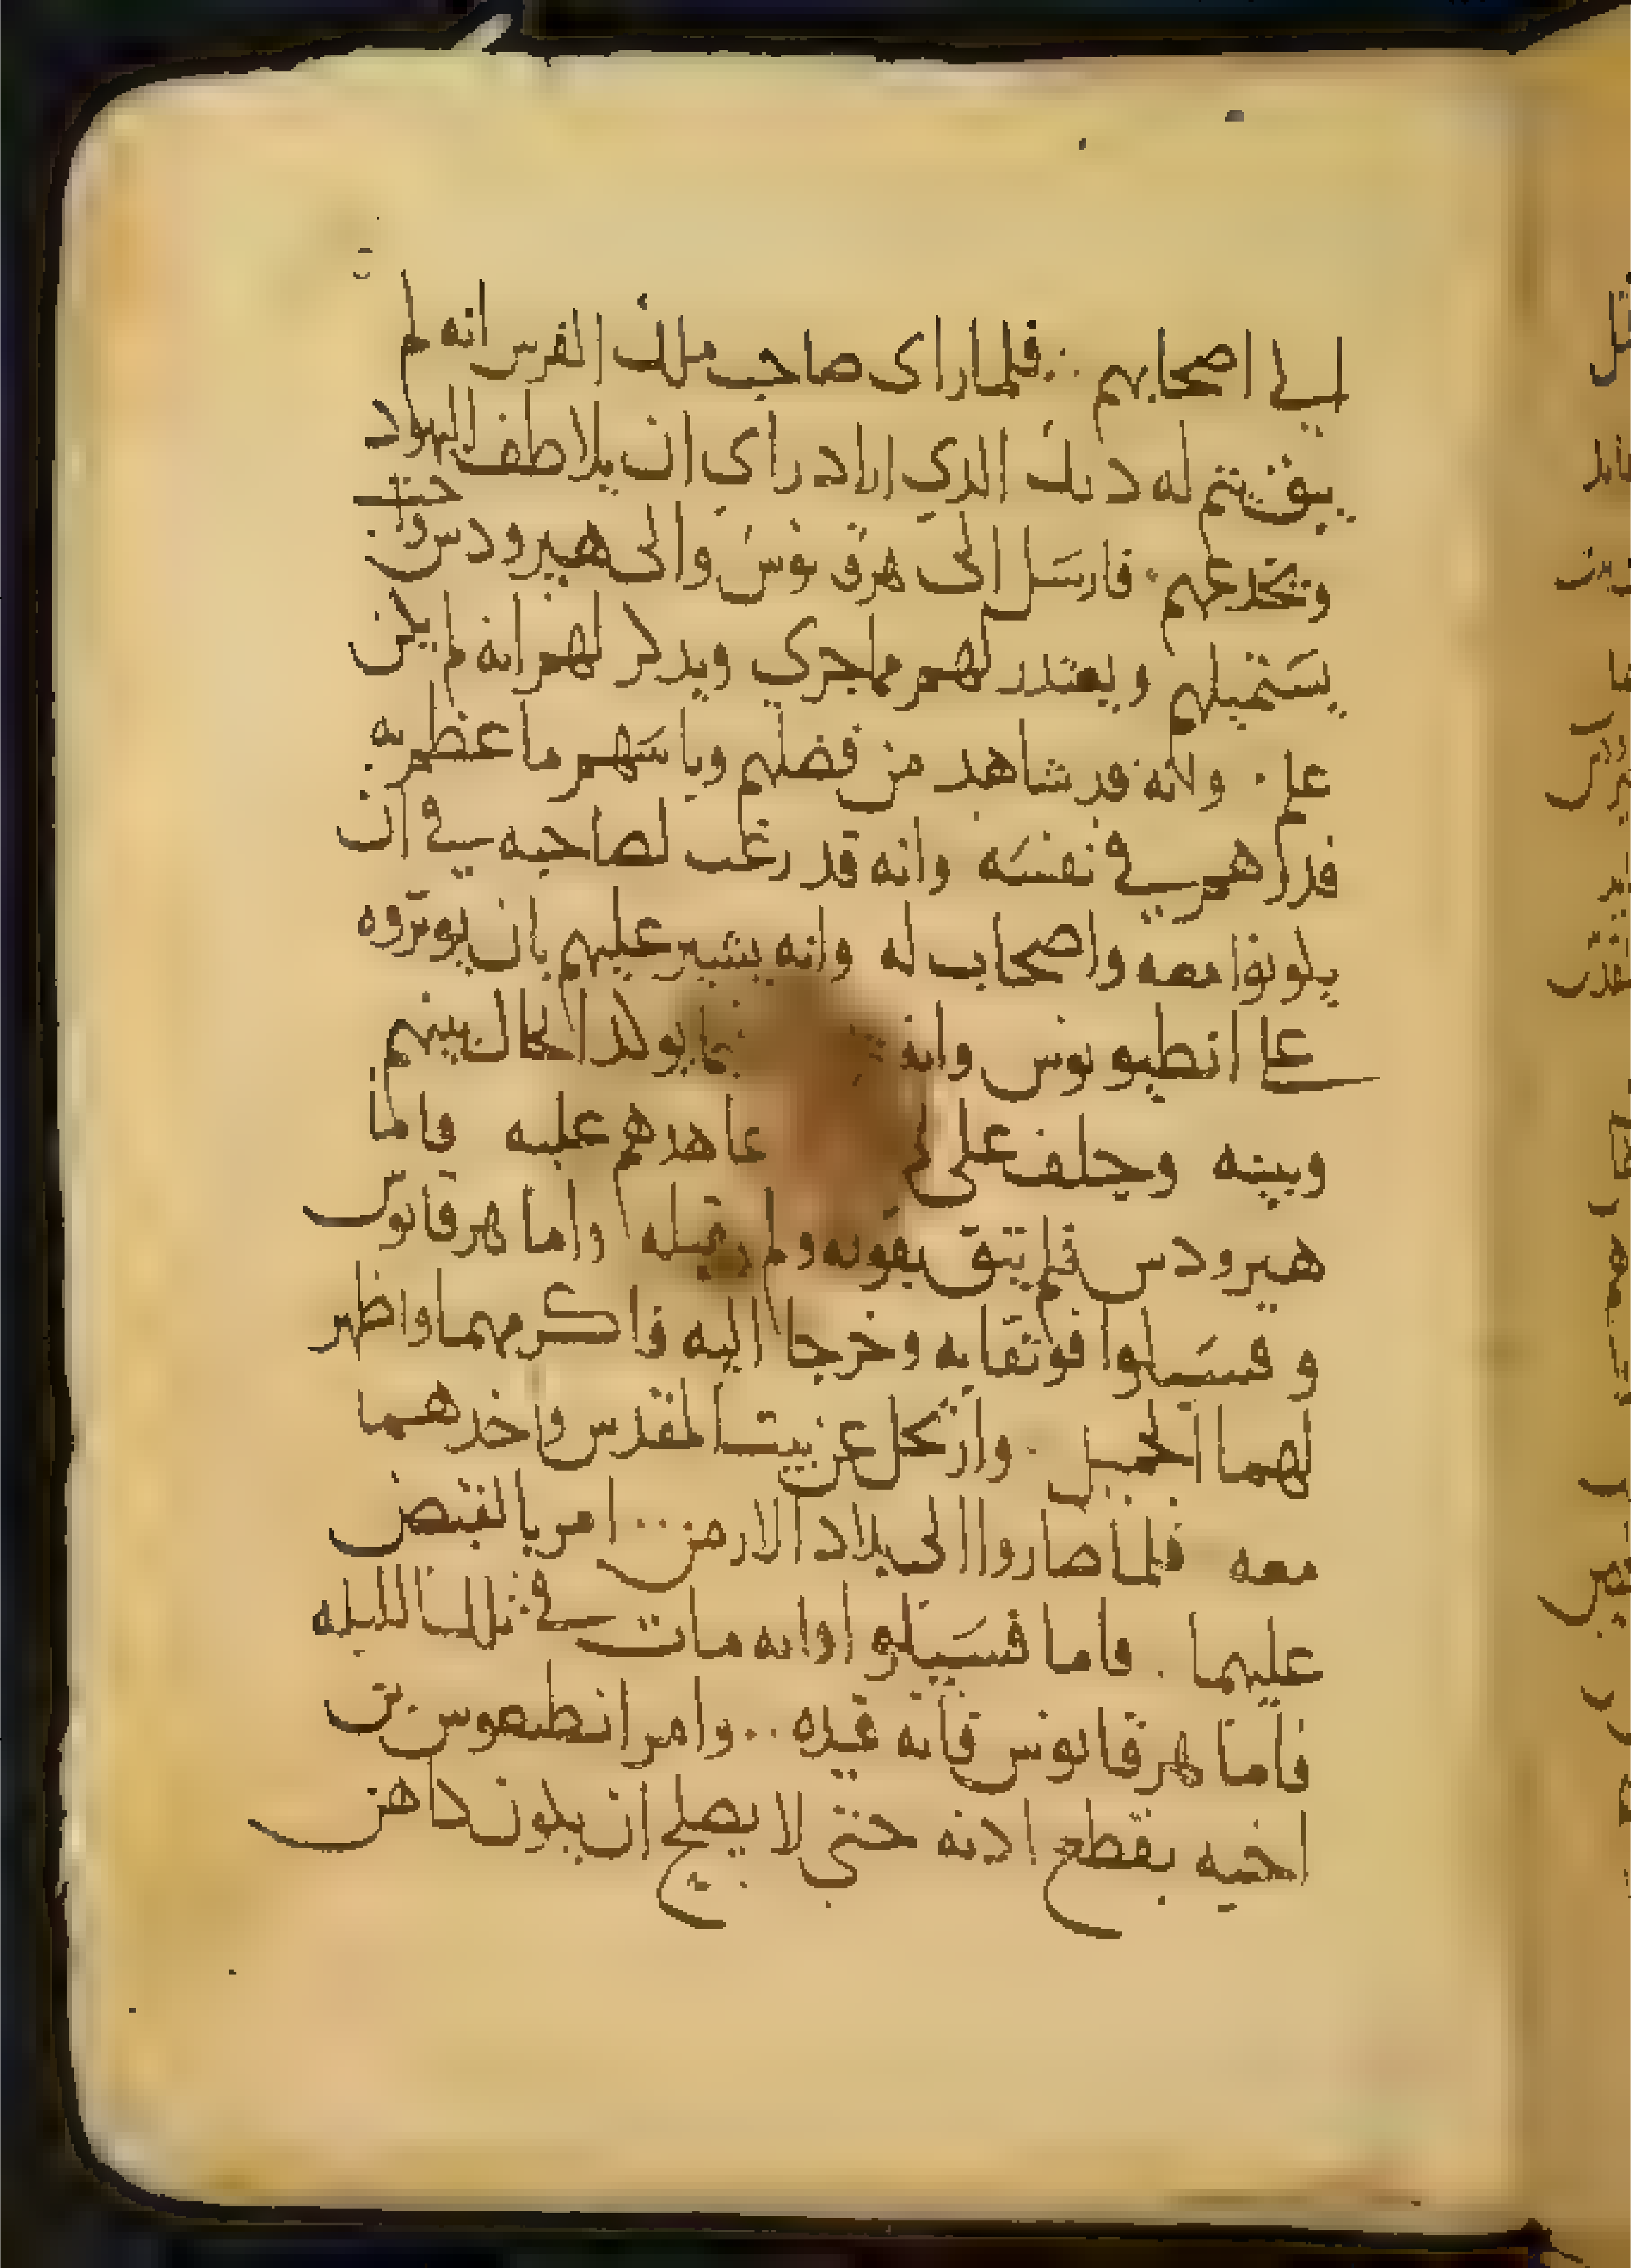 الى اصحابهم ؞ فلما راى صاحب ملك الفرس انه لم
يتفق تتم له ديك الدي اراد راي ان يلاطف اليهود
ويخدعهم ٠ فارسل الى هرقنوس والى هيرودس وا حتى
يستميلهم ويعتدر لهم مما جري ويدكر لهم انه لم يكن
علم ٠ وانه قد شاهد من فضلهم وباسهم ما عظم به
قدرهم في نفسه وانه قد رغب لصاحبه في ان
يكونوا معه واصحاب له وانه يشير عليهم بان يوتروه
على انطيونوس بما يوكد الحال بينهم
وبينه وحلف على عاهدهم عليه فاما
هيرودس فلم يتق بقوله ولم يقبله واما هرقانوس
و فسيلوا فوتقا به وخرجا اليه فاكرمهما واظهر
لهما الجميل ٠ وارتحل عن بيت المقدس واخدهما
معه فلما صاروا الى بلاد الارمن ٠٠ امر بالقبض
عليهما ٠ فاما فسيلوا فانه مات في تلك الليله
فاما هرقانوس فانه قيده ٠٠ وامر انطيغوس بن
اخيه بقطع ادنه حتى لا يصلح ان يكون كاهن